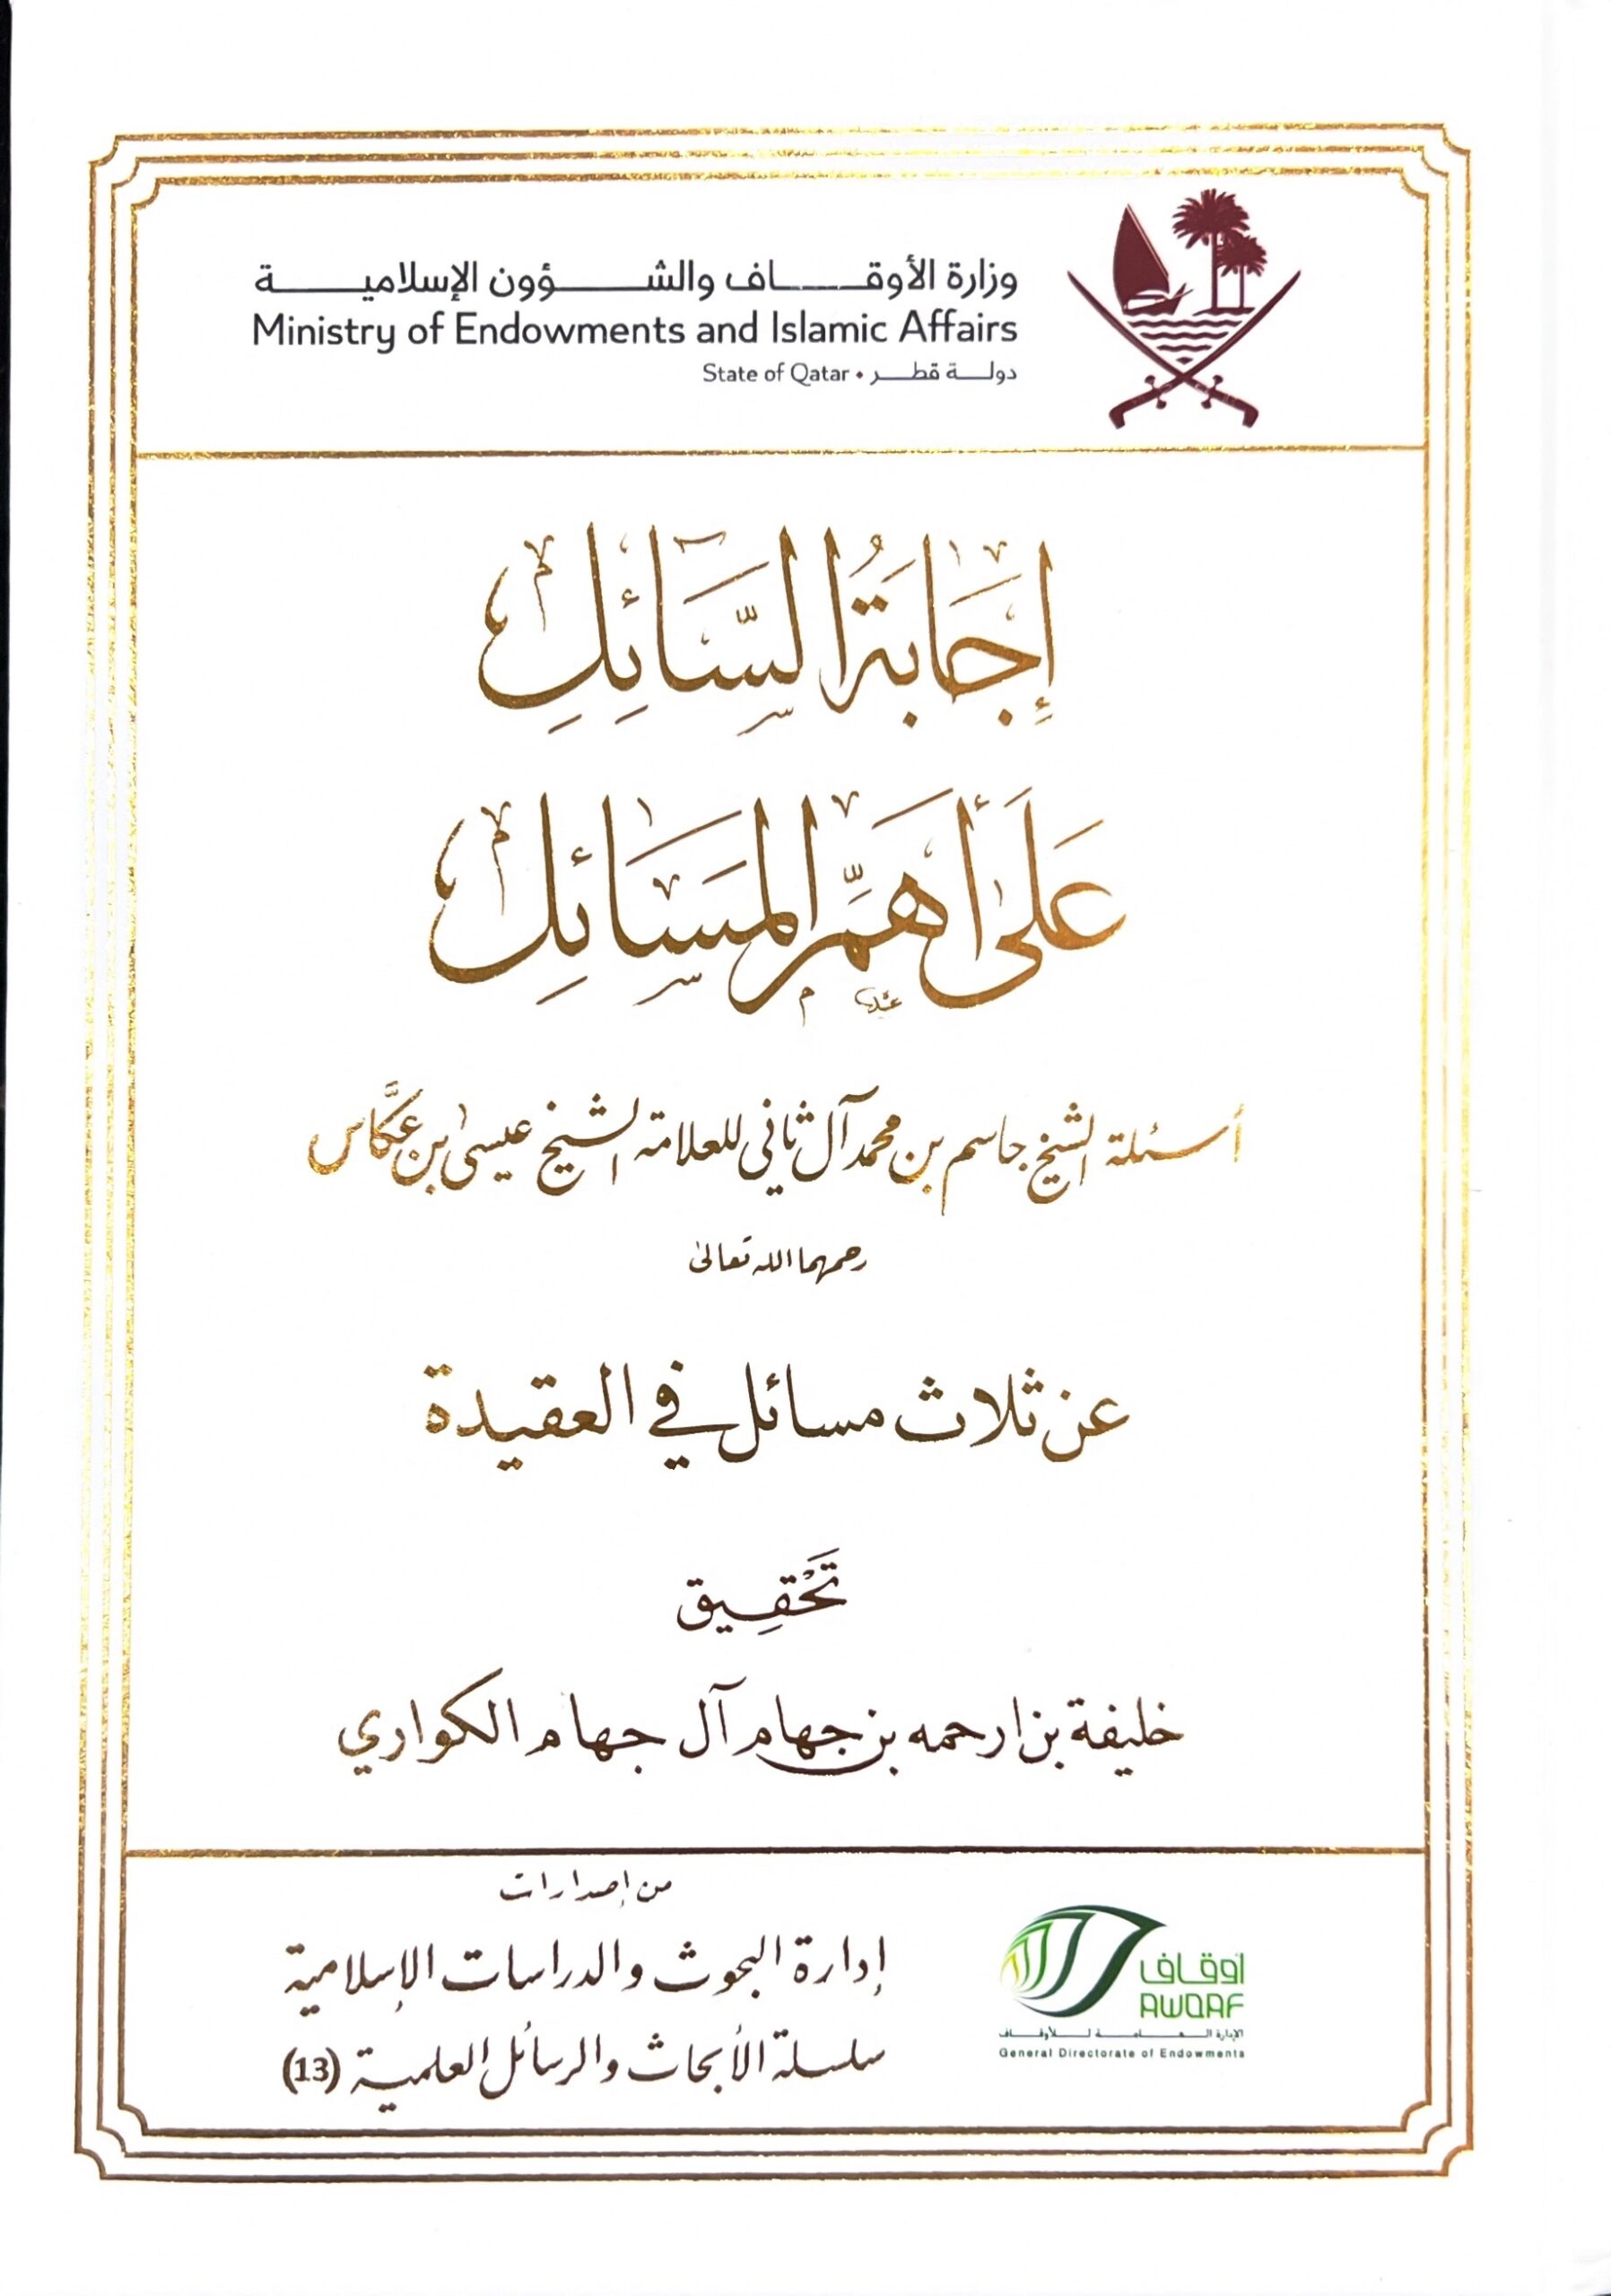 وزارة الأوقاف والشؤون الإسلامية
Ministry of Endowments and Islamic Affairs
دولة قطر • State of Qatar
إِجَابَةُ السَّائِلِ
عَلَى أَهَمِّ المَسَائِلِ
أسئلة الشيخ جاسم بن محمد آل ثاني للعلامة الشيخ عيسى بن عكَّاس
رحمهما الله تعالى
عن ثلاث مسائل في العقيدة
تَحْقِيق
خليفة بن ارحمه بن جهام آل جهام الكواري
من إصدارات
إدارة البحوث والدراسات الإسلامية
سلسلة الأبحاث والرسائل العلمية (13)
أوقاف
AWQAF
الإدارة العامة للأوقاف
General Directorate of Endowments